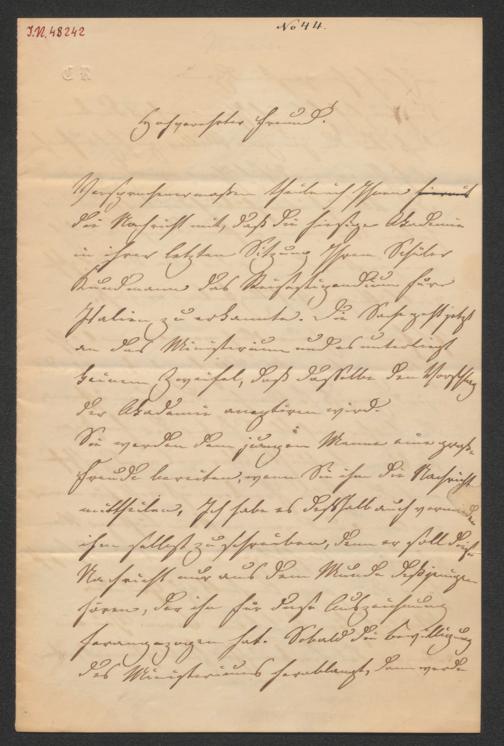 I.N. 48242
No 44.
Hochverehrter Freund!
Versprochenermaßen theile ich Ihnen hiermit
die Nachricht mit, daß die hiesige Akademie
in ihrer letzten Sitzung Ihrem Schüler
Kundmann das Reisestipendium für
Italien zu erkannte. Die Sache geht jetzt
an das Ministerium und es unterliegt
keinem Zweifel, daß dasselbe den Vorschlag
der Akademie acceptiren wird.
Sie werden dem jungen Manne eine große
Freude bereiten, wenn Sie ihm die Nachricht
mittheilen. Ich habe es deßhalb auch vermieden
ihm selbst zu schreiben, denn er soll diese
Nachricht nur aus dem Munde desjenigen
hören, der ihn für diese Auszeichnung
herangezogen hat. Sobald die Bewilligung
des Ministeriums herablangt, dann werde